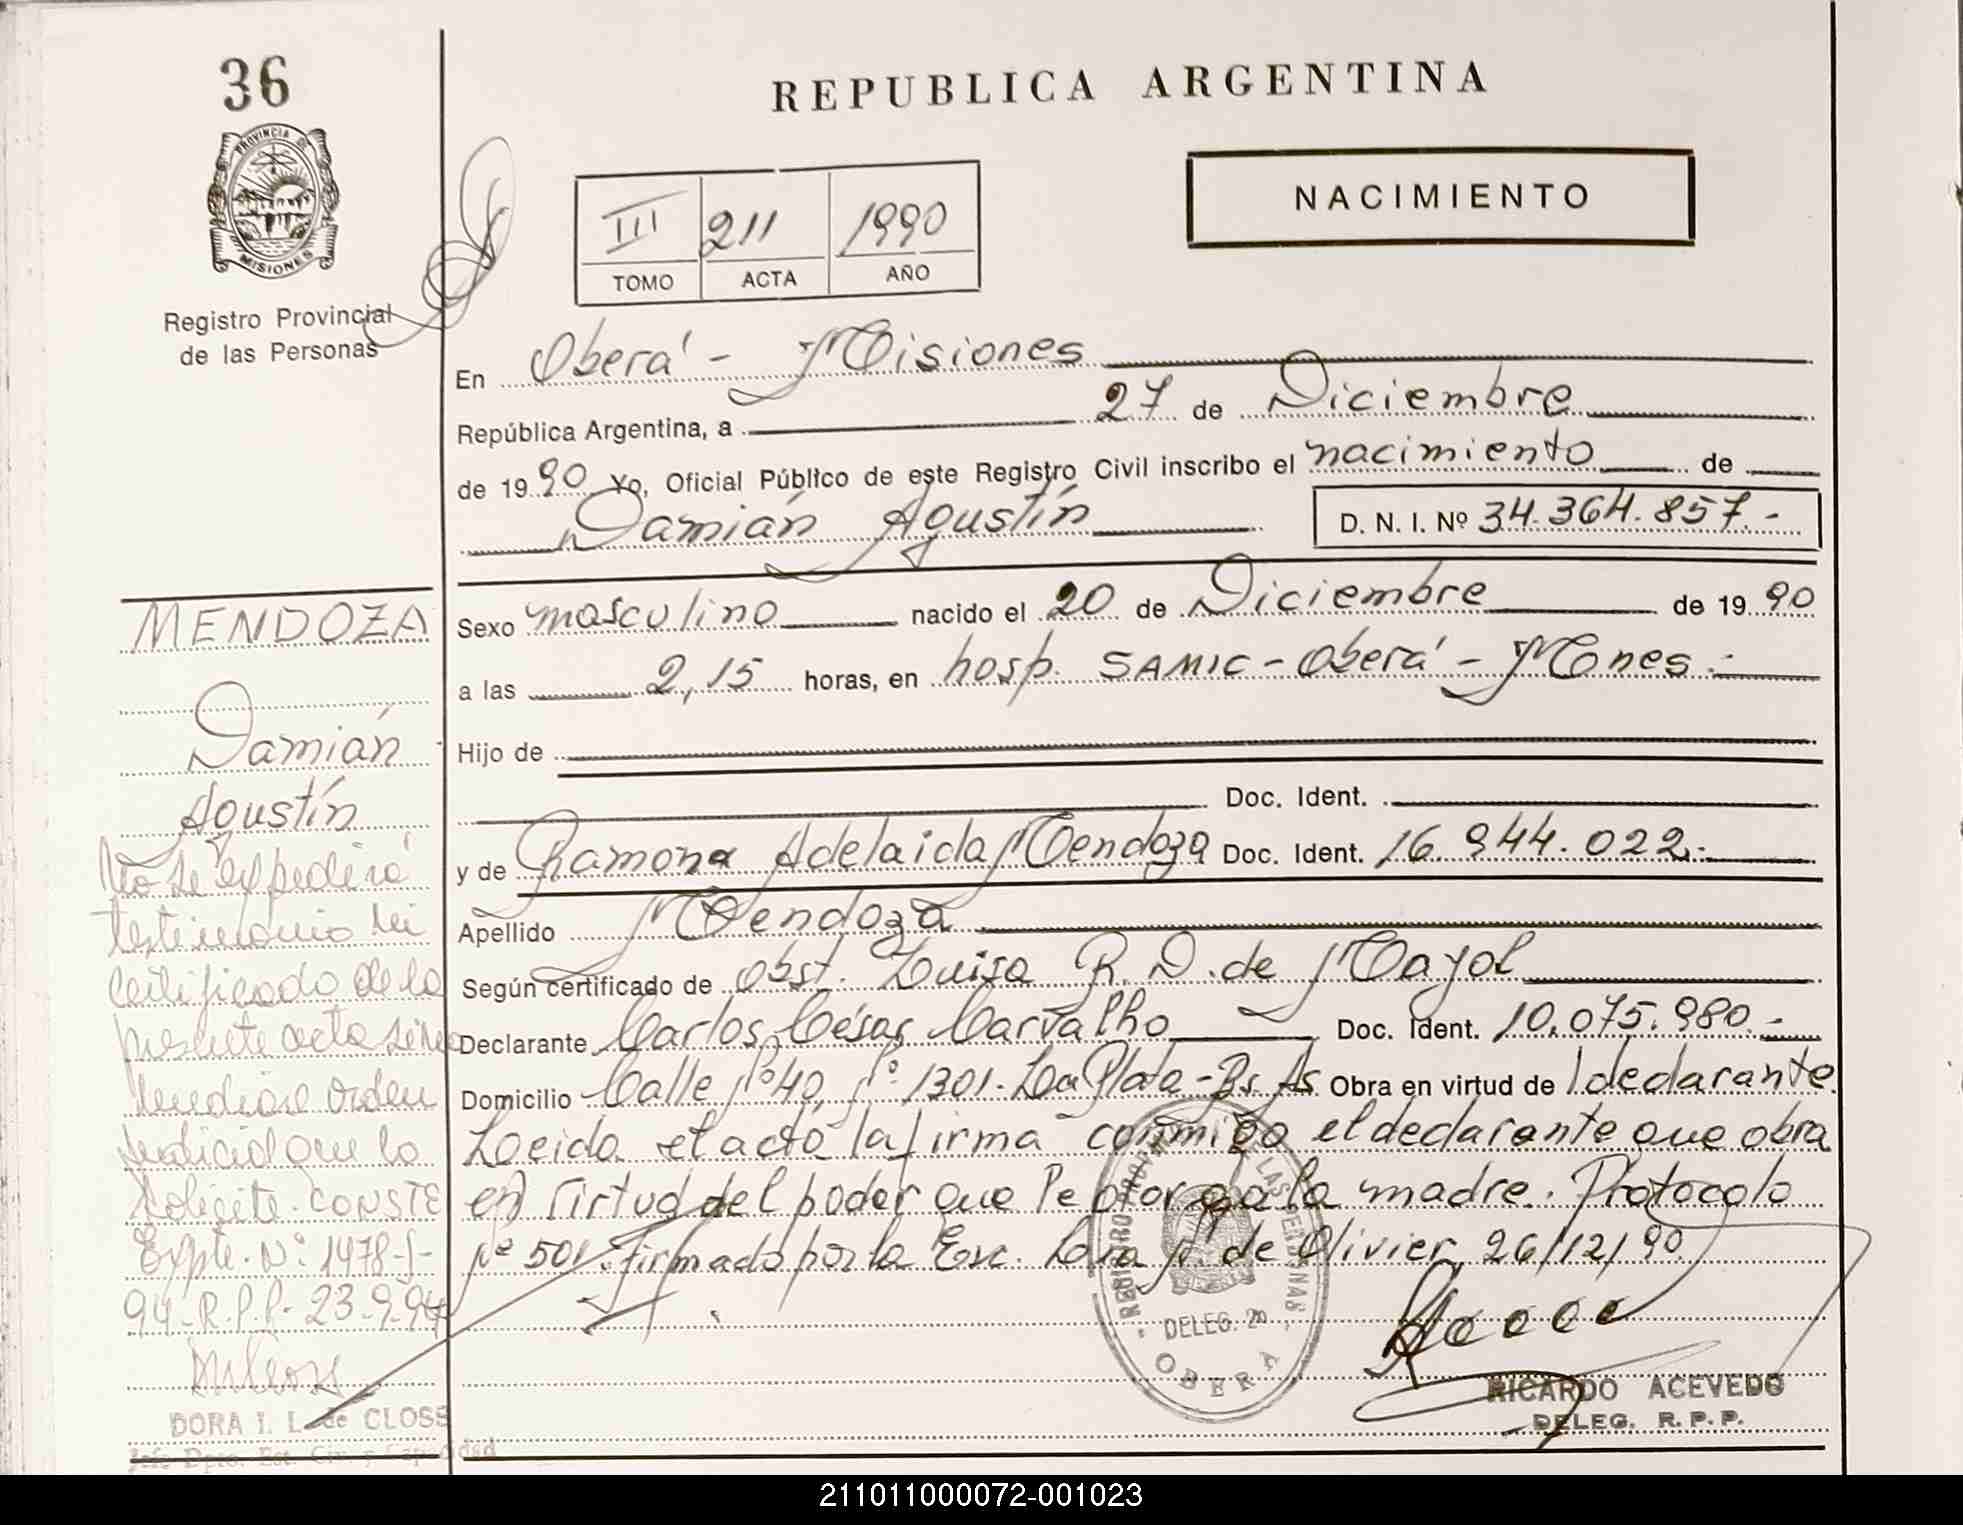 36
REPUBLICA ARGENTINA
PROVINCIA DE
MISIONES
Registro Provincial
de las Personas
NACIMIENTO
III 211 1990
TOMO ACTA AÑO
En Oberá - Misiones
República Argentina, a 27 de Diciembre
de 1990 Yo, Oficial Público de este Registro Civil inscribo el nacimiento de
Damián Agustín D. N. I. Nº 34.364.857.-
Sexo masculino nacido el 20 de Diciembre de 1990
a las 2,15 horas, en hosp. SAMIC - Oberá - Mones.-
Hijo de
Doc. Ident.
y de Ramona Adelaida Mendoza Doc. Ident. 16.944.022.-
Apellido Mendoza
Según certificado de obst. Luisa R. D. de Mayol
Declarante Carlos César Carvalho Doc. Ident. 10.075.980.-
Domicilio Calle Nº 40, Nº 1301. La Plata - Bs. As. Obra en virtud de l declarante.
Leida el acta la firma conmigo el declarante que obra
en virtud del poder que le otorga la madre. Protocolo
Nº 501. firmado por la Esc. de Olivier 26/12/90
MENDOZA
Damián
Agustín
No se expedirá
testimonio ni
certificado de la
presente acta sino
mediare orden
judicial que lo
solicite. CONSTE
Expte. Nº: 1478-
94-R.P.P. 23.9.94
DORA I. L. de CLOSS
Jefe Dpto. Est. Civ. y Capacidad
REGISTRO PROVINCIAL DE LAS PERSONAS
DELEG.
OBERA
RICARDO ACEVEDO
DELEG. R. P. P.
211011000072-001023